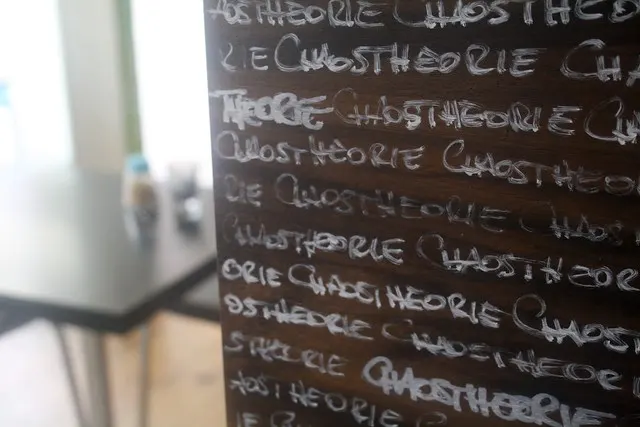 AOSTHEORIE CHAOSTHEO
RIE CHAOSTHEORIE CHA
THEORIE CHAOSTHEORIE CH
CHAOSTHEORIE CHAOSTHEORI
RIE CHAOSTHEORIE CHAOS
CHAOSTHEORIE CHAOSTHEOR
ORIE CHAOSTHEORIE CHAOST
OSTHEORIE CHAOSTHEORIE
STHEORIE CHAOSTHEORIE
AOSTHEORIE CHAO
RIE CHAO